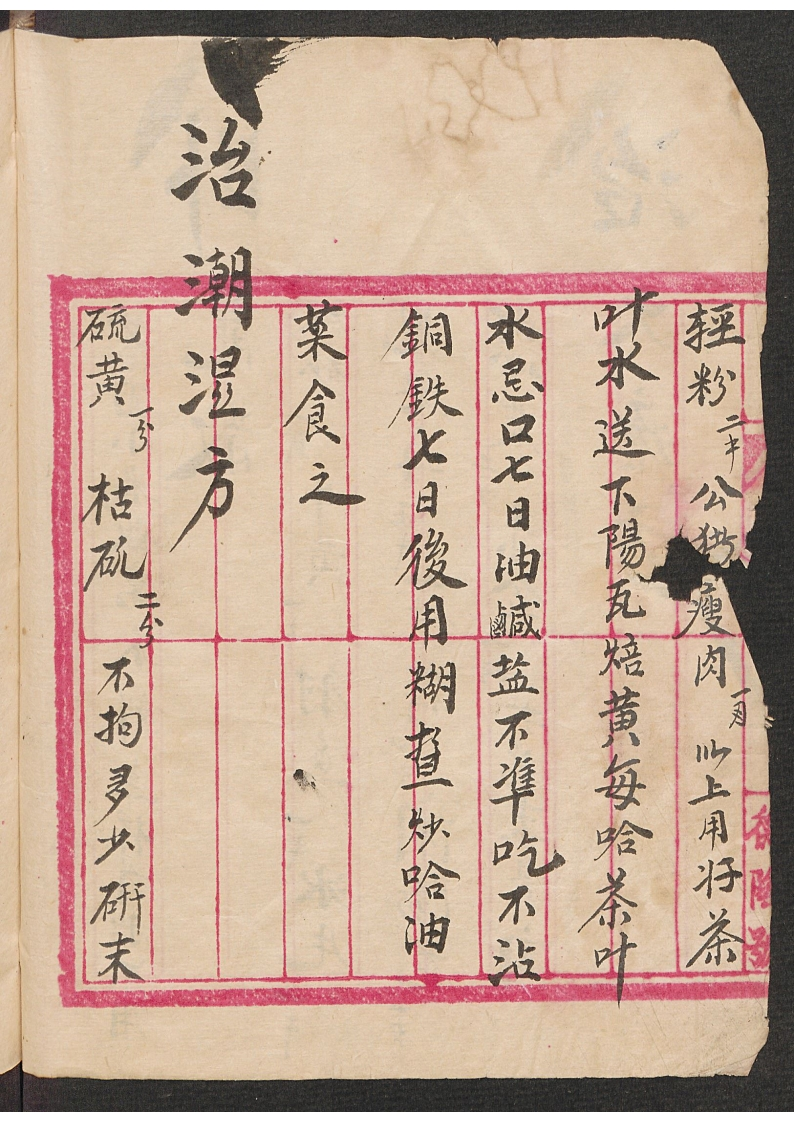 輕粉二ヰ公猪瘦肉一 以上用好茶
叶水送下陽瓦焙黄每哈茶叶
水忌口七日油鹹盐不準吃不沾
銅鉄七日後用糊 炒哈油
菜食之
治潮湿方
硫黄一分枯矾二分不拘多少研末